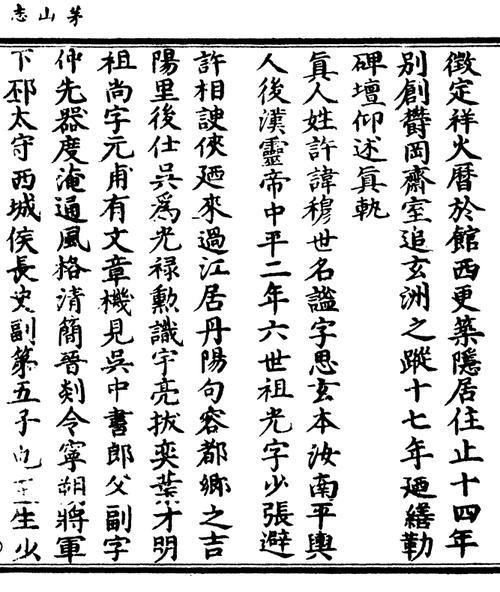 茅山志
徵定祥火曆於館西更築隱居住止十四年
別創欝岡齋室追玄洲之蹤十七年廼繕勒
碑壇仰述眞軌
眞人姓許諱穆世名謐字思玄本汝南平輿
人後漢靈帝中平二年六世祖光字少張避
許相諛俠廼來過江居丹陽句容都鄉之吉
陽里後仕吳爲光祿勳識宇亮拔奕葉才明
祖尚字元甫有文章機見吳中書郎父副字
仲先器度淹通風格清簡晉剡令寧朔將軍
下邳太守西城侯長史副第五子也生少